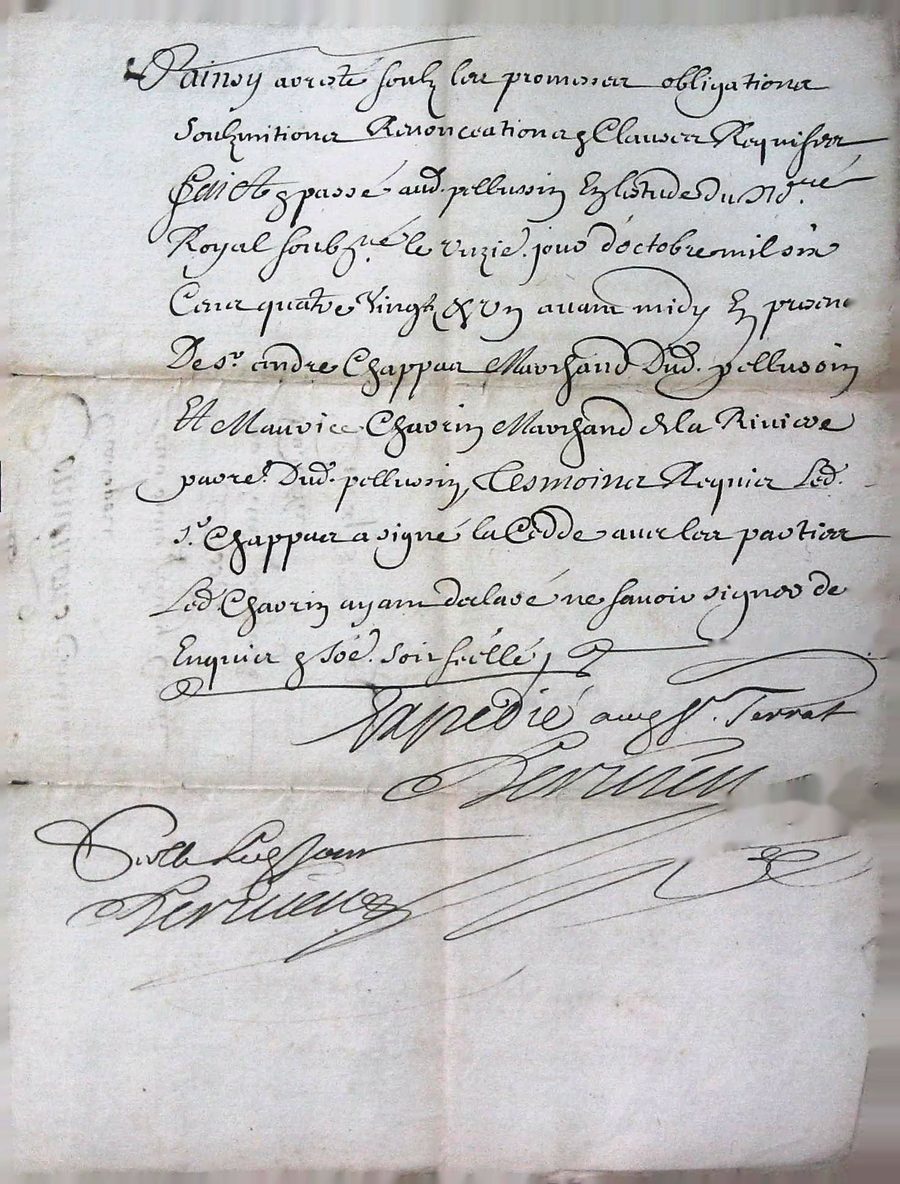 Et ainsy arresté soubz les promesses obligations
Soubzmitions Renonceations & Clauses Requises
faict & passé aud. pellussin En lestude du no.re
Royal soubz.né le unzie. jour doctobre mil six
Cens quatre Vingt & Un avant midy En presence
De sr. andre Chappuis Marchand Dud. pellussin
Et Maurice Chavrin Marchand de la Riviere
parre. Dud. pellussin, Tesmoins Requis Led.
sr. Chappuis a signé la Cedde avec les parties
Led Chavrin ayant declaré ne savoir signer de
Enquis & soé. soit scéllé
Expedié aud sr. Terrat
Scellé led jour